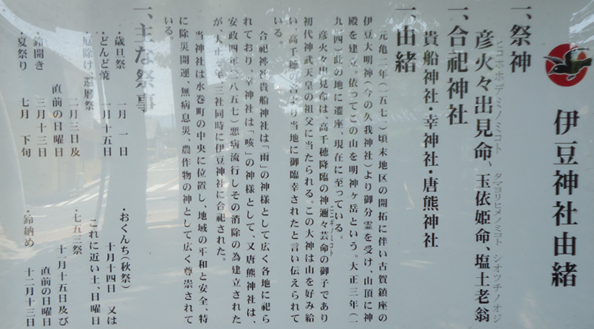 伊豆神社由緒
一、祭神
ヒコホホデミノミコト タマヨリヒメノミコト シオツチノオジ
彦火々出見命、玉依姫命、塩土老翁
一、合祀神社
貴船神社・幸神社・唐熊神社
一、由緒
元亀二年(一五七一)頃末地区の開拓に伴い古賀鎮座の
伊豆大明神(今の久我神社)より御分霊を受け、山頂に神
殿を建立。依ってこの山を明神ヶ岳という。大正三年(一
九一四)此の地に遷座、現在に至っている。
彦火々出見命は、高千穂降臨の神邇々芸命の御子であり
初代神武天皇の祖父に当たられる。この大神は山を好み給
い、高千穂の山より当地に御臨幸されたと言い伝えられて
いる。
合祀神社貴船神社は「雨」の神様として広く各地に祀ら
れており、幸神社は「咳」の神様として、又唐熊神社は、
安政四年(一八五七)悪病流行しその消除の為建立された
が、大正十三年三社同時に伊豆神社に合祀された。
当神社は水巻町の中央に位置し、地域の平和と安全、特
に除災開運、無病息災、農作物の神として広く尊崇されて
いる。
一、主な祭事
・歳旦祭 一月一日
・どんど焼 一月十五日
・厄除け 二月三日及
直前の日曜日
・鈴開き 三月十三日
・夏祭り 七月下旬
・おくんち(秋祭)
十月十四日 又は
これに近い土、日曜日
・七五三祭
十一月十五日及び
直前の日曜日
・鈴納め 十二月十三日